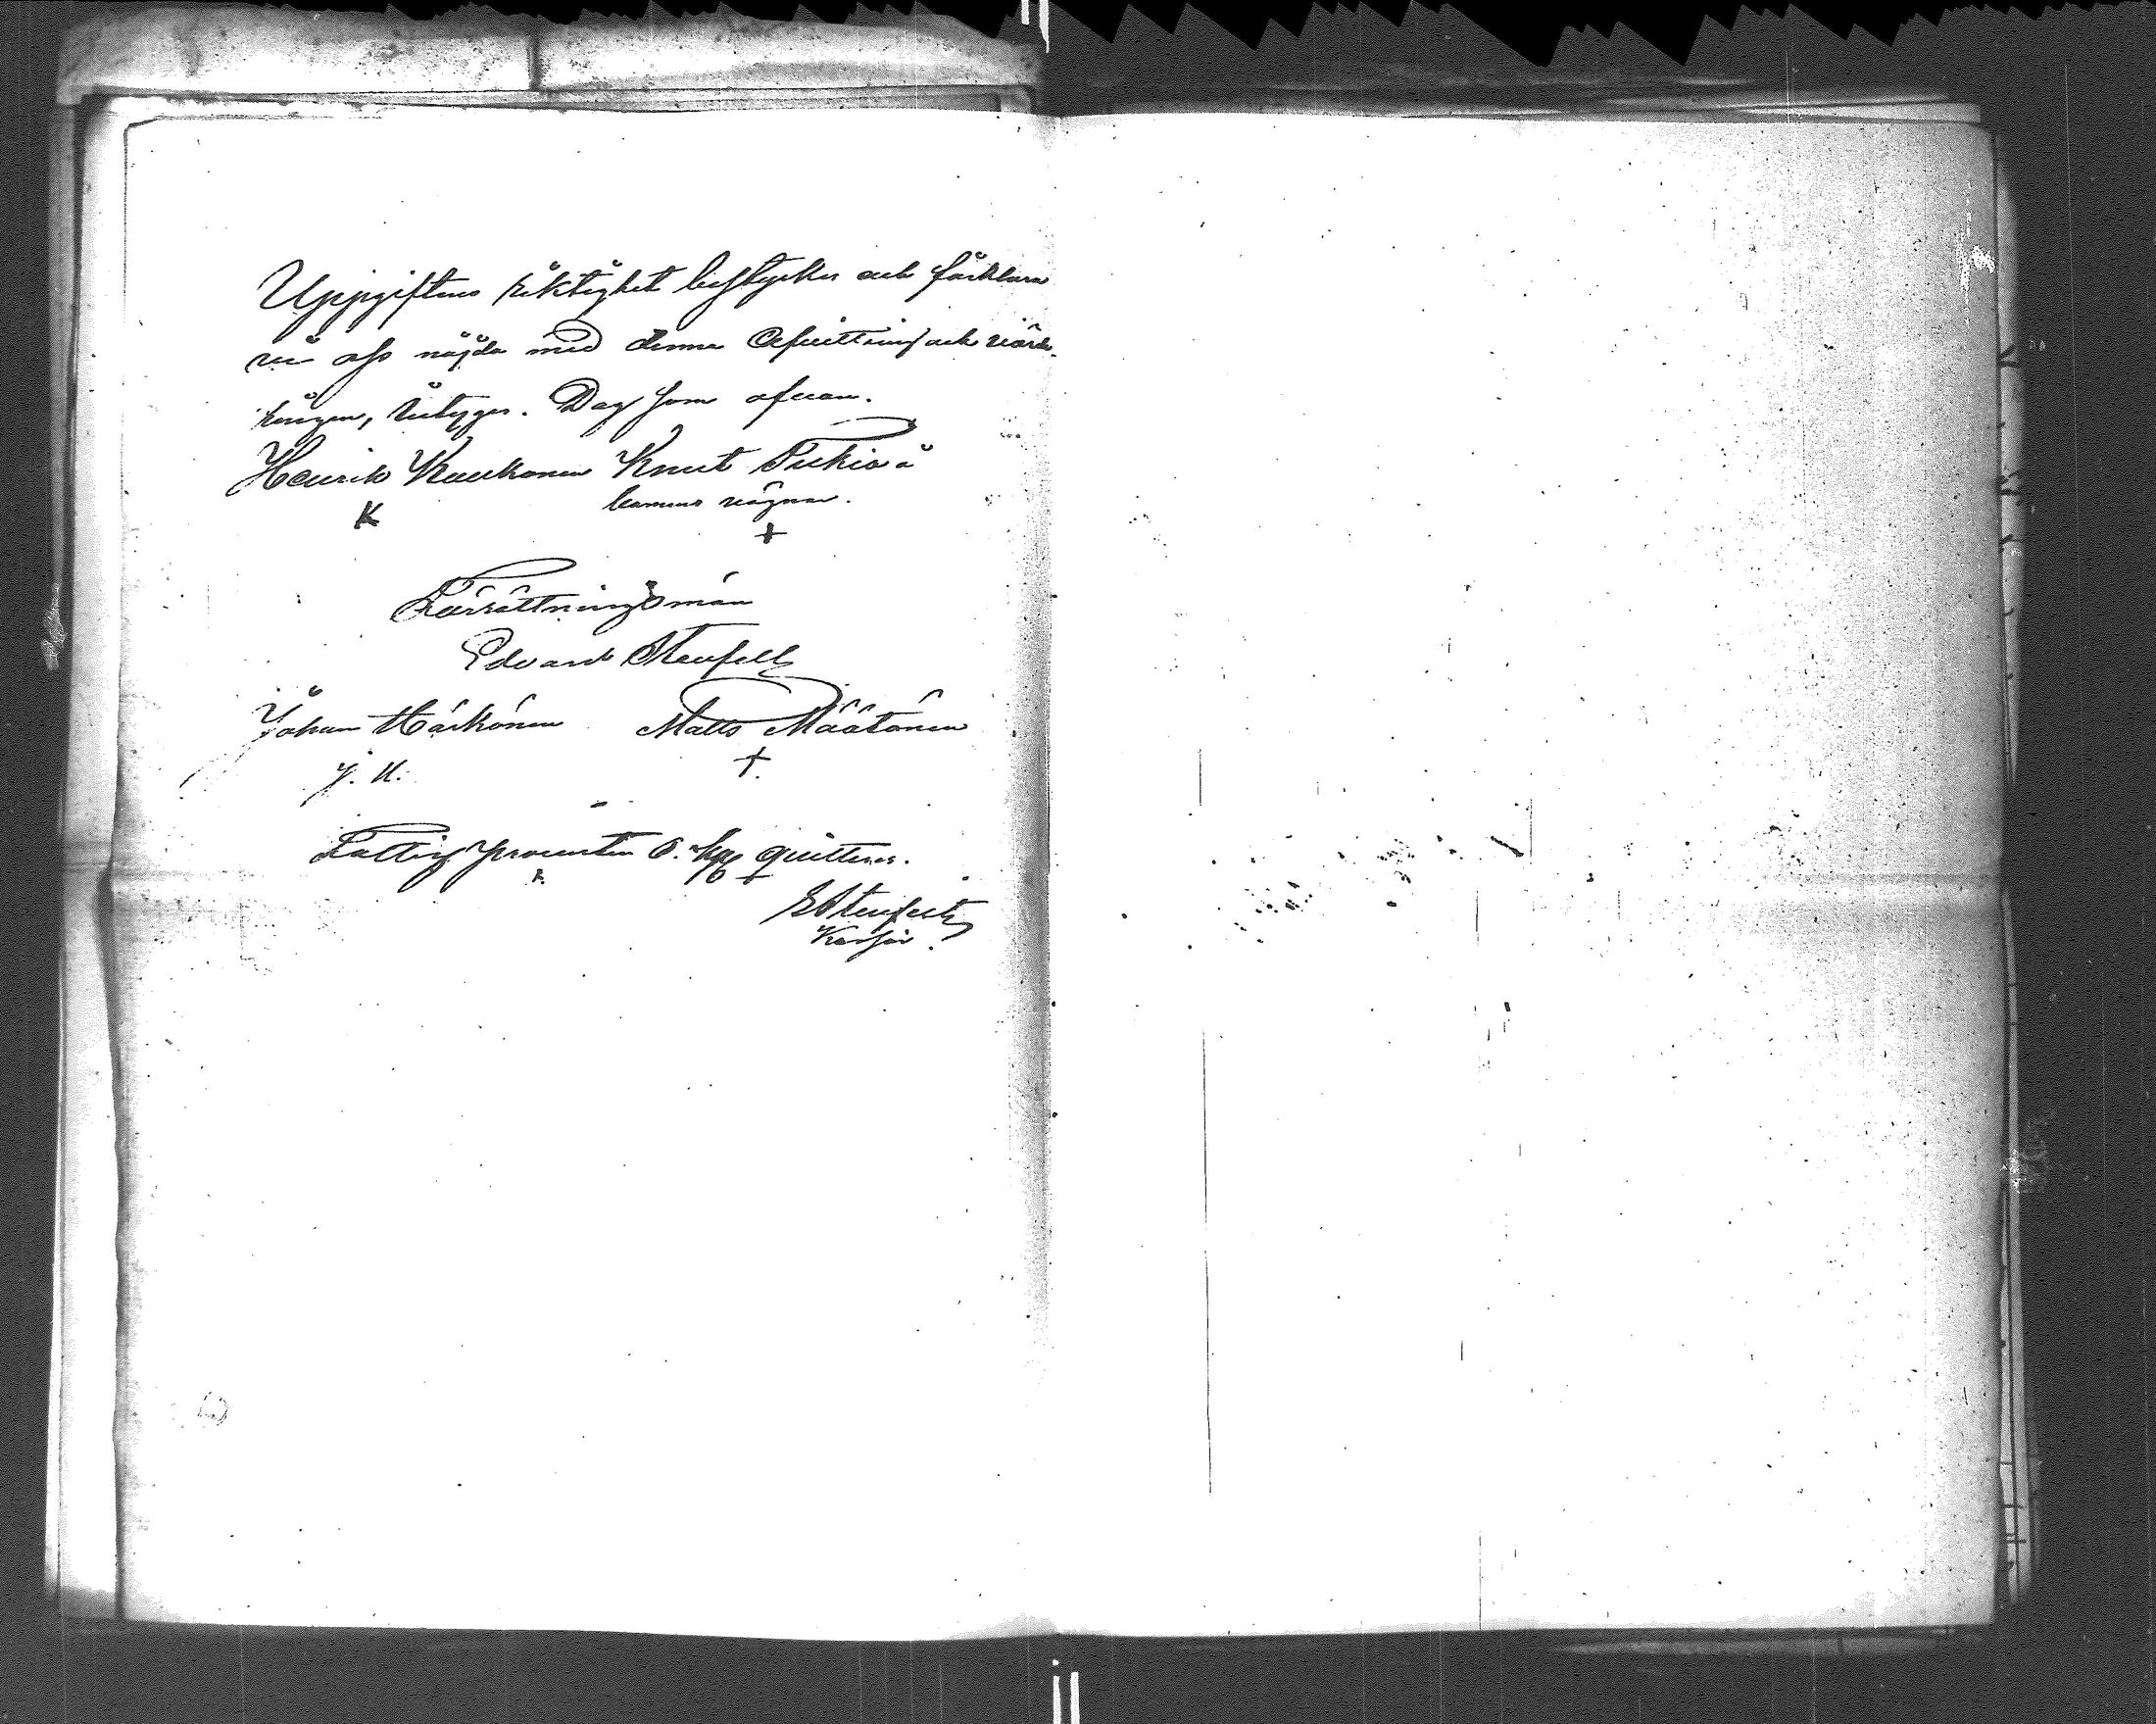 Uppgiftens riktighet bestyrkes och förklara
vi oss nöjda med denna Afvittring och värde-
ringen, betygar. Dag som ofvan.
Henrik Kuukonen Knut Pukia å
barnens vägnar.
K +
Förrättningsmän
Edvard Stenfelt
Johan Härkönen Matts Määtänen
J. H. +
Fattig procenten qvitteras.
E Stenfelt
Kassör.